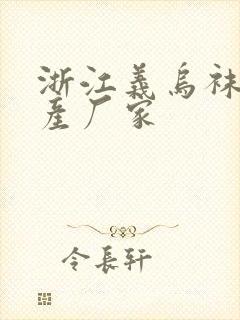 浙江義烏袜
産厂家
令長轩